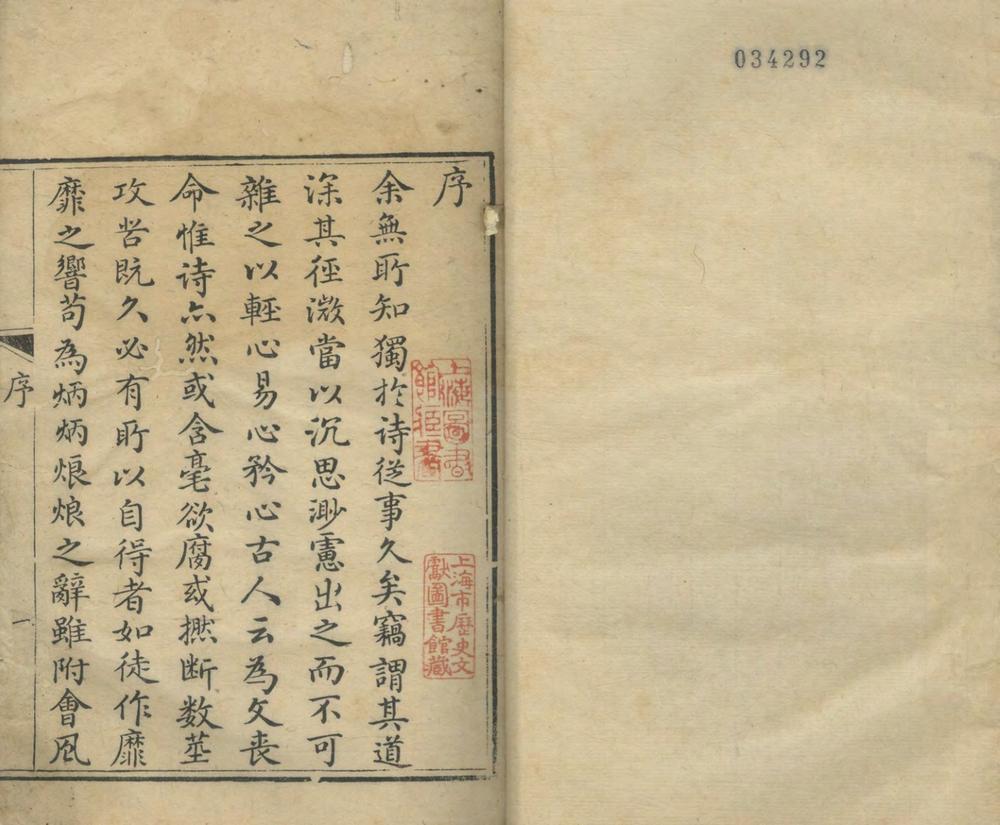 034292
序
余無所知獨於诗從事久矣竊謂其道
深其徑微當以沉思渺慮出之而不可
雜之以輕心易心矜心古人云為文喪
命惟诗亦然或含毫欲腐或撚断数莖
攻苦既久必有所以自得者如徒作靡
靡之響苟為炳炳烺烺之辭雖附會风
序
一
上海圖書
館藏書
上海市歷史文
獻圖書館藏